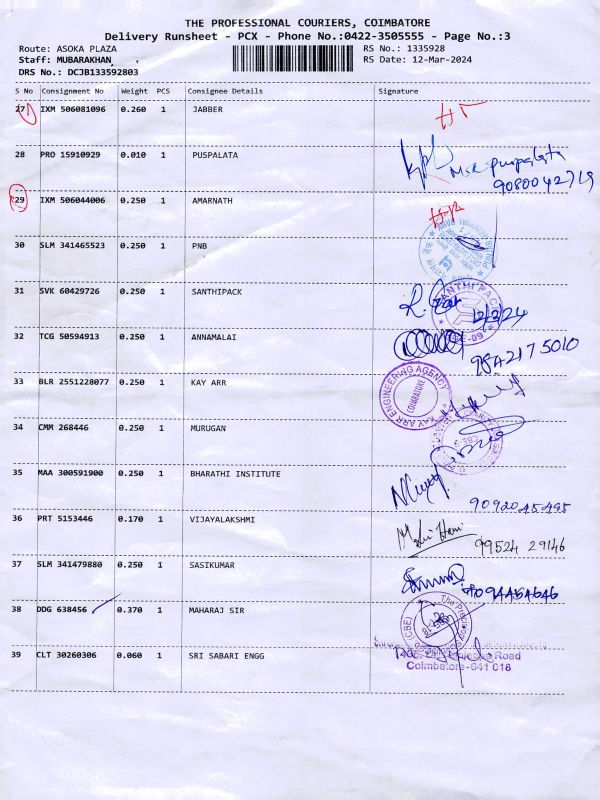 THE PROFESSIONAL COURIERS, COIMBATORE
Delivery Runsheet - PCX - Phone No.:0422-3505555 - Page No.:3
Route: ASOKA PLAZA
RS No.: 1335928
Staff: MUBARAKHAN
RS Date: 12-Mar-2024
DRS No.: DCJB133592803
S No Consignment No Weight PCS Consignee Details Signature
27 IXM 506081096 0.260 1 JABBER
28 PRO 15910929 0.010 1 PUSPALATA
puspalata
9080042719
29 IXM 506044006 0.250 1 AMARNATH
30 SLM 341465523 0.250 1 PNB
31 SVK 60429726 0.250 1 SANTHIPACK
12/3/24
32 TCG 50594913 0.250 1 ANNAMALAI
9842175010
33 BLR 2551228077 0.250 1 KAY ARR
KAY ARR ENGINEERING AGENCY
COIMBATORE
34 CMM 268446 0.250 1 MURUGAN
35 MAA 300591900 0.250 1 BHARATHI INSTITUTE
36 PRT 5153446 0.170 1 VIJAYALAKSHMI
99524 29146
37 SLM 341479880 0.250 1 SASIKUMAR
38 DDG 638456 0.370 1 MAHARAJ SIR
39 CLT 30260306 0.060 1 SRI SABARI ENGG
Road
Coimbatore-641 018